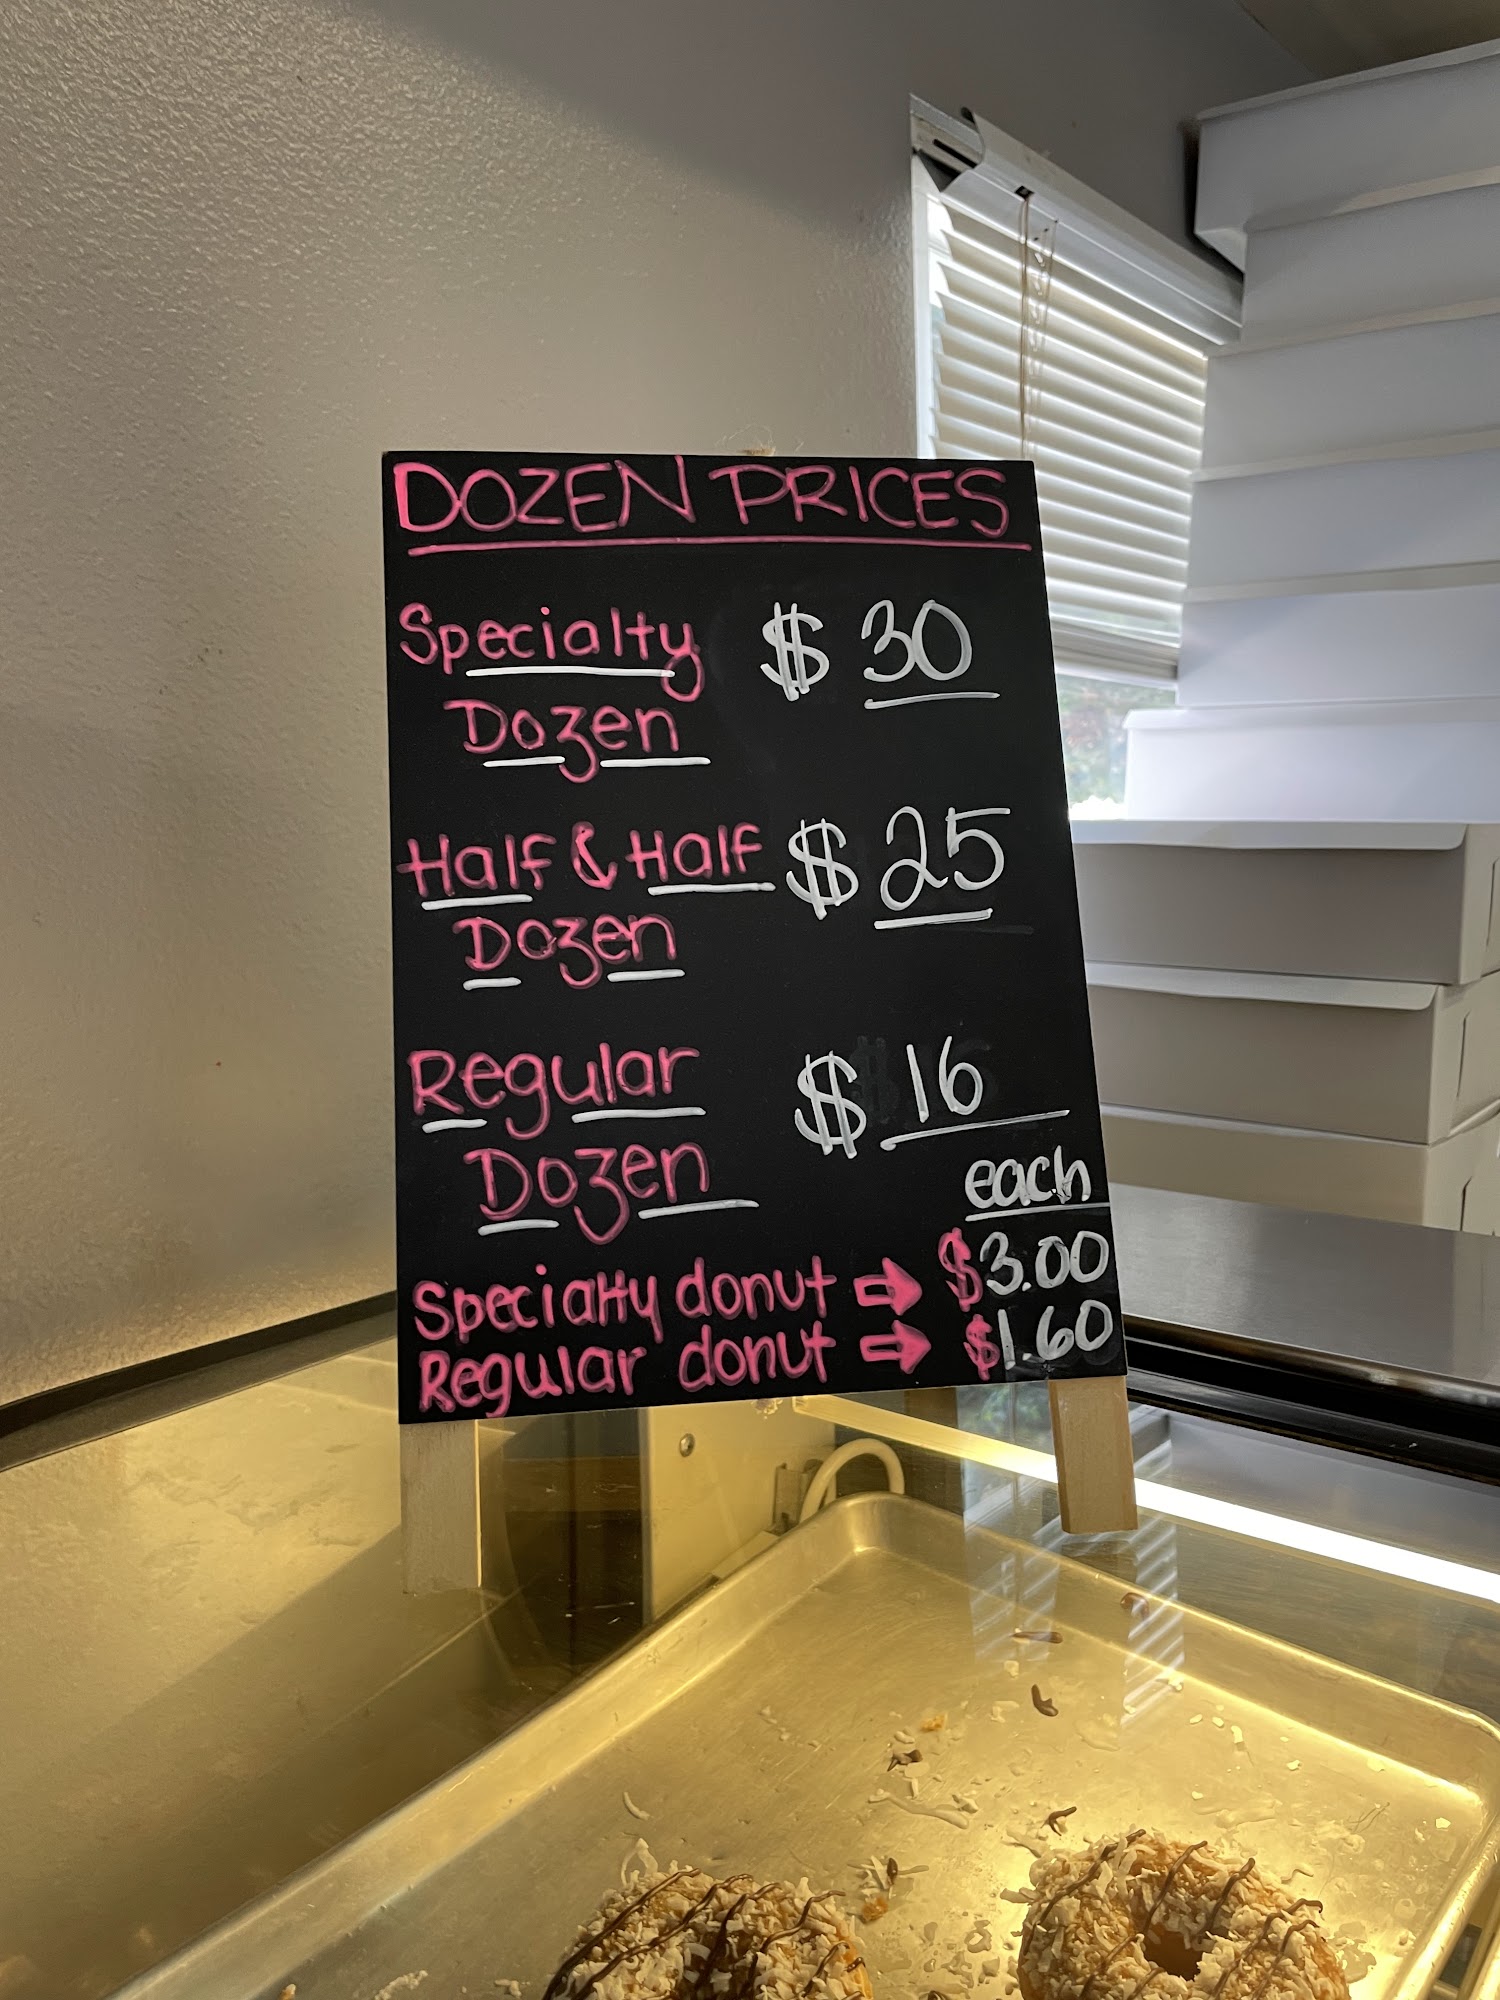 DOZEN PRICES
Specialty $30
Dozen
Half & Half $25
Dozen
Regular $16
Dozen
each
Specialty donut ⇨ $3.00
Regular donut ⇨ $1.60